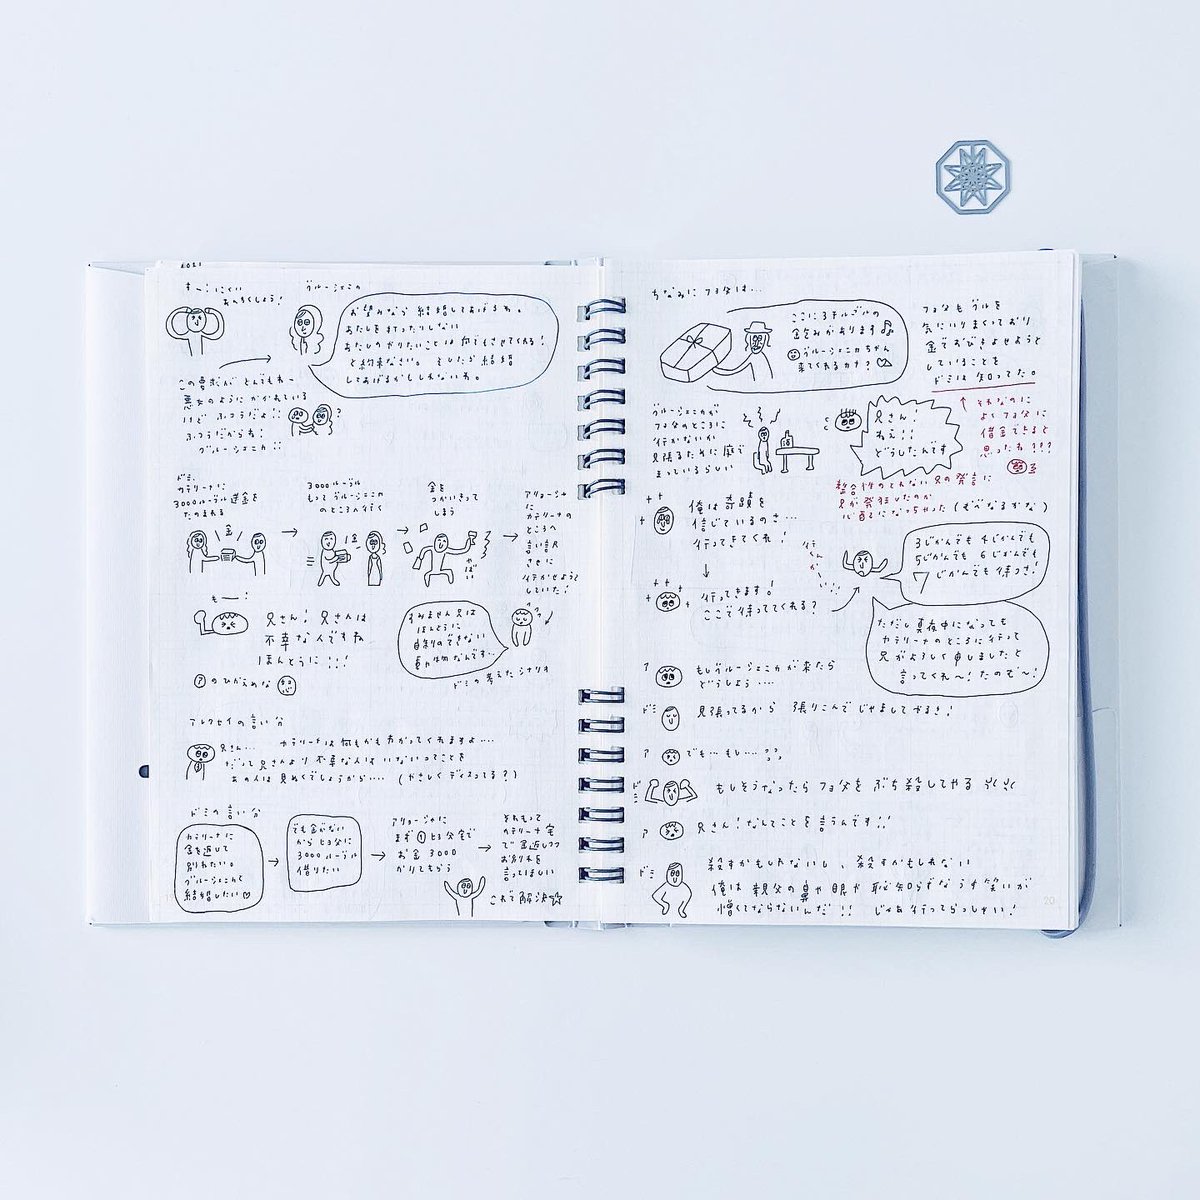 グルーシェニカ
お望みなら結婚してあげるわ。
あたしを打ったりしない
あたしのやりたいことは何でもさせてくれる!
と約束なさい。そしたら結婚
してあげるかもしれないわ。
この要求が とんでもねー
悪女のように かかれている
けど ふつうだよ!!
ふつうだからね!
グルーシェニカ!!
ドミ、
カテリーナに
3000ルーブル送金を
たのまれる
金
3000ルーブル
もって グルーシェニカ
のところへ行く
金
金を
つかいきって
しまう
やばい
アリョーシャ
に
カテリーナの
ところへ
言い訳
させに
行かせようと
していた!
もー!
兄さん! 兄さんは
不幸な人ですね
ほんとうに!!!
すみません兄は
ほんとうに
自制のできない
ドミの考えたシナリオ
アのひかえめな
アレクセイの言い分
兄さん… カテリーナは何もかも分かってくれますよ…
だって兄さんより不幸な人はいないってことを
あの人は見ぬくでしょうから… (やさしくディスってる?)
ドミの言い分
カテリーナに
金を返して
別れたい。
グルーシェニカと
結婚したい♡
でも金がない
から
3000ルーブル
借りたい
アリョーシャに
お金3000
かりてもらう
それもって
カテリーナ宅
で金返しつつ
お別れを
言ってほしい
これで解決☆
ちなみにフョ父は…
ここに3千ルーブルの
金包みがあります♪
グルーシェニカちゃん
来てくれるカナ?
フョ父もグルを
気にいりまくっており
金でおびきよせようと
していることを
ドミは知ってた。
それなのに
よくフョ父に
借金できると
思ったね???
グルーシェニカが
フョ父のところに
行かないか
見張るために庭で
まっているらしい
兄さん!
ねえ!!
どうしたんです
整合性のとれない兄の発言に
兄が発狂したのか
心配になっちゃった(むべなるかな)
俺は奇蹟を
信じているのさ…
行ってきてくれ!
行ってきます!
ここで待っててくれる?
3じかんでも4じかんでも
5じかんでも6じかんでも
7じかんでも待つさ!
ただし真夜中になっても
カテリーナのところに行って
兄がよろしく申しましたと
言ってくれ〜!たのむ〜!
ア
もしグルーシェニカが来たら
どうしよう…
ドミ
見張ってるから 張りこんでじゃましてやるさ!
ア
でも…もし…
ドミ
もしそうなったらフョ父をぶち殺してやる
ア
兄さん!なんてことを言うんです!!
ドミ
殺すかもしれないし、殺さないかもしれない
俺は親父の鼻や眼や恥知らずなうす笑いが
憎くてならないんだ!! じゃあ行ってらっしゃい!
20